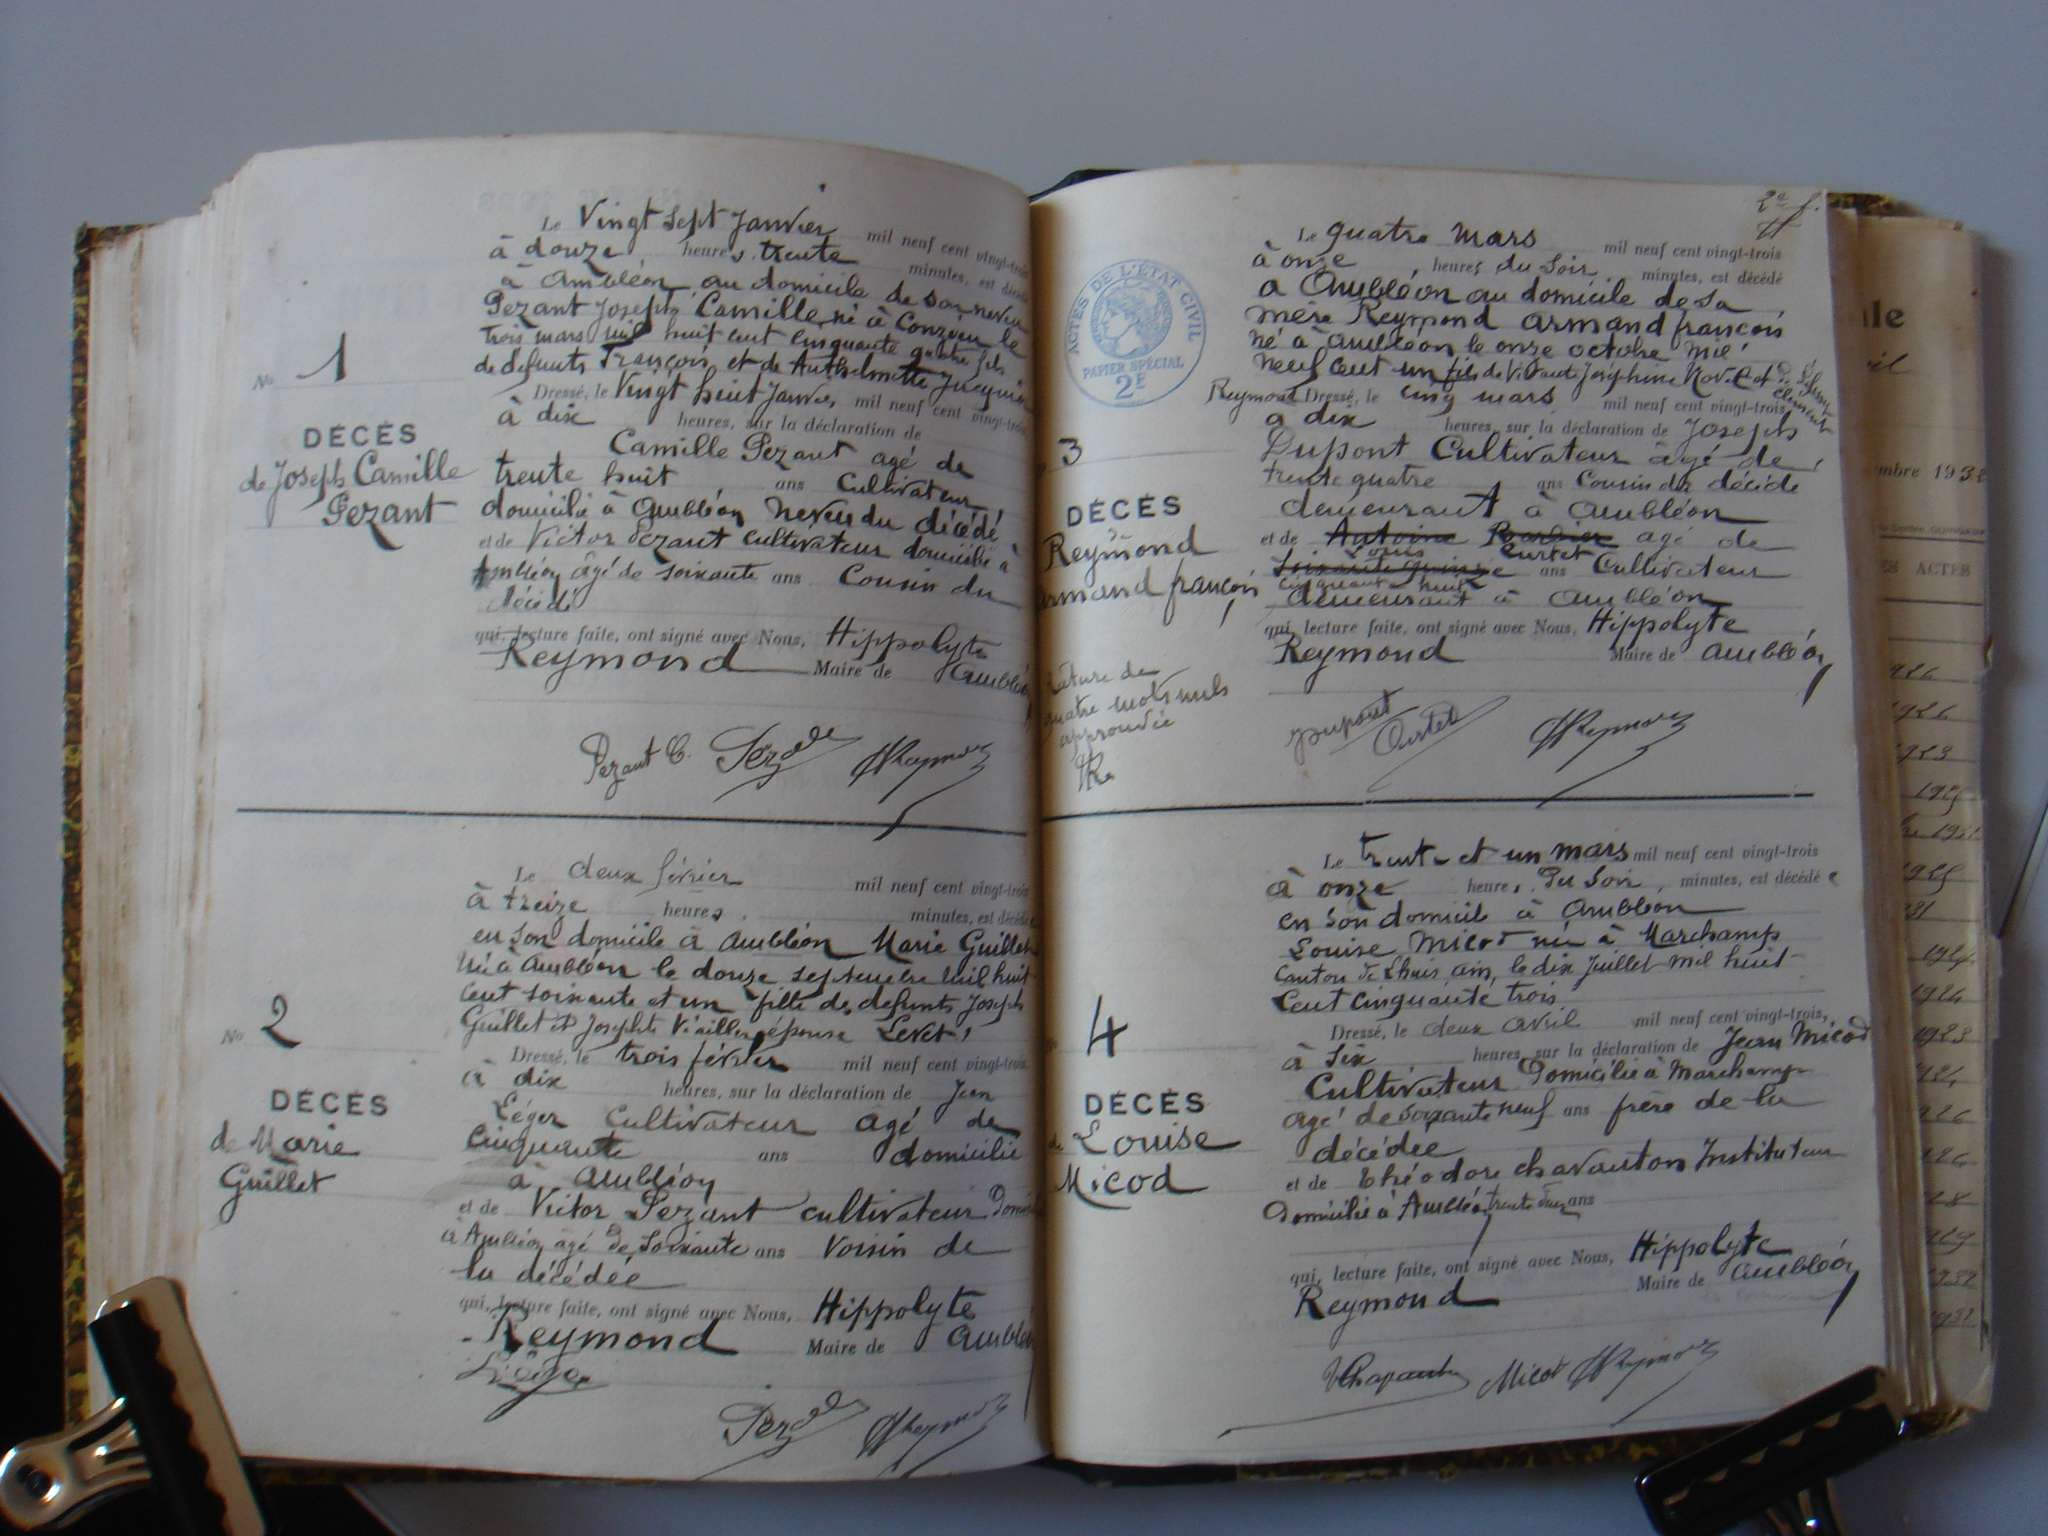 Le Vingt sept Janvier mil neuf cent vingt-trois
à douze heures trente minutes, est décédé
à Ambléon au domicile de son neveu
Pezant Joseph Camille né à Conzieu le
trois mars mil huit cent cinquante quatre fils
de défunts François et de Anthelmette Jacquin
No 1
DÉCÈS
de Joseph Camille
Pezant
Dressé, le Vingt huit Janvier mil neuf cent vingt-trois
à dix heures, sur la déclaration de
Camille Pezant agé de
trente huit ans Cultivateur
domicilié à Ambléon Neveu du décédé
et de Victor Pezant cultivateur domicilié à
Ambléon âgé de soixante ans Cousin du
décédé
qui, lecture faite, ont signé avec Nous, Hippolyte
Reymond Maire de Ambléon
Pezant C. Reymond
Le deux février mil neuf cent vingt-trois
à treize heures minutes, est décédée
en son domicile à Ambléon Marie Guillet
née à Ambléon le douze septembre mil huit
cent soixante et un fille de defunts Joseph
Guillet et Josephte épouse Levet
No 2
DÉCÈS
de Marie
Guillet
Dressé, le trois février mil neuf cent vingt-trois
à dix heures, sur la déclaration de Jean
Léger Cultivateur agé de
Cinquante ans domicilié
à Ambléon
et de Victor Pezant cultivateur
à Ambléon agé de soixante ans Voisin de
la décédée
qui, lecture faite, ont signé avec Nous, Hippolyte
Reymond Maire de Ambléon
Léger
Reymond
Le quatre mars mil neuf cent vingt-trois
à onze heures du soir minutes, est décédé
à Ambléon au domicile de sa
mère Reymond Armand françois
né à Ambléon le onze octobre mil
neuf cent un fils de Vivante Joséphine Novel et de défunt Clément
Reymond Dressé, le cinq mars mil neuf cent vingt-trois
ACTES DE L'ÉTAT CIVIL
PAPIER SPÉCIAL
2E
3
DÉCÈS
Reymond
Armand françois
à dix heures, sur la déclaration de Joseph
Dupont Cultivateur âgé de
trente quatre ans Cousin du décédé
demeurant à Ambléon
et de Antoine Barbier agé de
Louis Curtet
Soixante quinze ans Cultivateur
cinquante huit
demeurant à Ambléon
qui, lecture faite, ont signé avec Nous, Hippolyte
Reymond Maire de Ambléon
rature de
quatre mots nuls
approuvée
HR
Dupont
Curtet
Reymond
Le trente et un mars mil neuf cent vingt-trois
à onze heures Du Soir, minutes, est décédée
en son domicile à Ambléon
Louise Micod née à Marchamp
Canton de Lhuis, ain, le dix Juillet mil huit
Cent cinquante trois
4
DÉCÈS
de Louise
Micod
Dressé, le deux avril mil neuf cent vingt-trois,
à six heures, sur la déclaration de Jean Micod
Cultivateur Domicilié à Marchamp
agé de soixante neuf ans frère de la
décédée
et de théodore chavanton Instituteur
Domicilié à Ambléon trente deux ans
qui, lecture faite, ont signé avec Nous, Hippolyte
Reymond Maire de Ambléon
Micod Reymond
ale
1932
ES ACTES